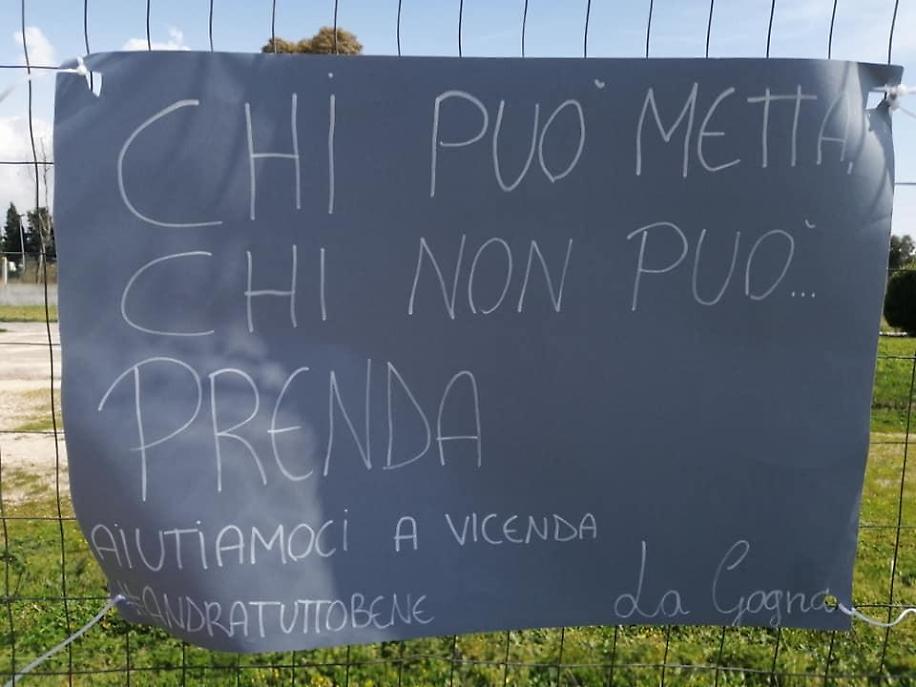 CHI PUÒ METTA,
CHI NON PUÒ...
PRENDA
AIUTIAMOCI A VICENDA
#ANDRATUTTOBENE
La Gogna